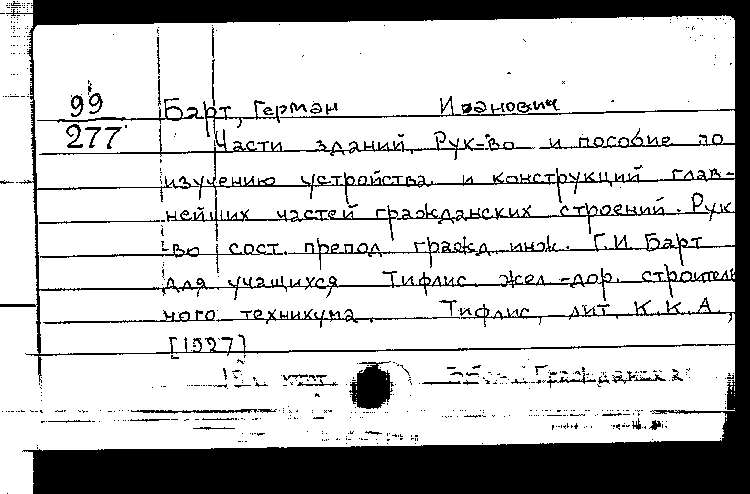 99
277
Барт, Герман Иванович
Части зданий. Рук-во и пособие по
изучению устройства и конструкций глав-
нейших частей гражданских строений. Рук
-во сост. препод гражд инж. Г.И. Барт
для учащихся Тифлис. жел-дор. строитель
ного техникума. Тифлис, лит. К.К.А.,
[1927]
Гражданская